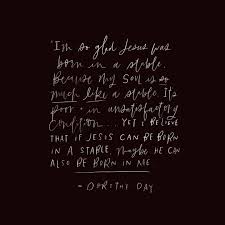 "I'm so glad Jesus was
born in a stable.
Because my soul is so
much like a stable. It's
poor + in unsatisfactory
condition... yet I believe
that if Jesus can be born
in a stable, maybe he can
also be born in me
- Dorothy Day